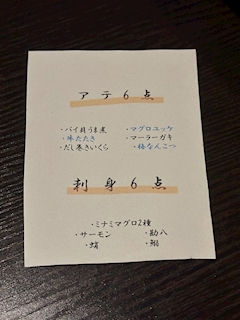 アテ6点
・バイ貝うま煮 ・マグロユッケ
・牛たたき ・マーラーガキ
・だし巻きいくら ・梅なんこつ
刺身6点
・ミナミマグロ2種
・サーモン ・勘八
・蛸 ・鰯